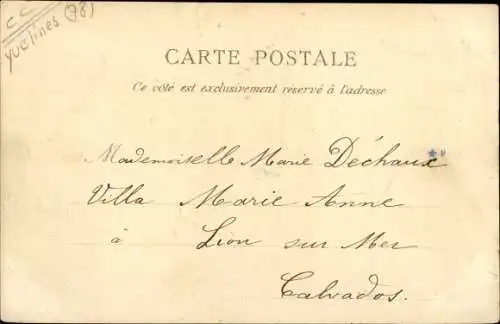 CC
Yvelines (78)
CARTE POSTALE
Ce côté est exclusivement réservé à l'adresse
Mademoiselle Marie Déchaux
Villa Marie Anne
à Lion sur Mer
Calvados.